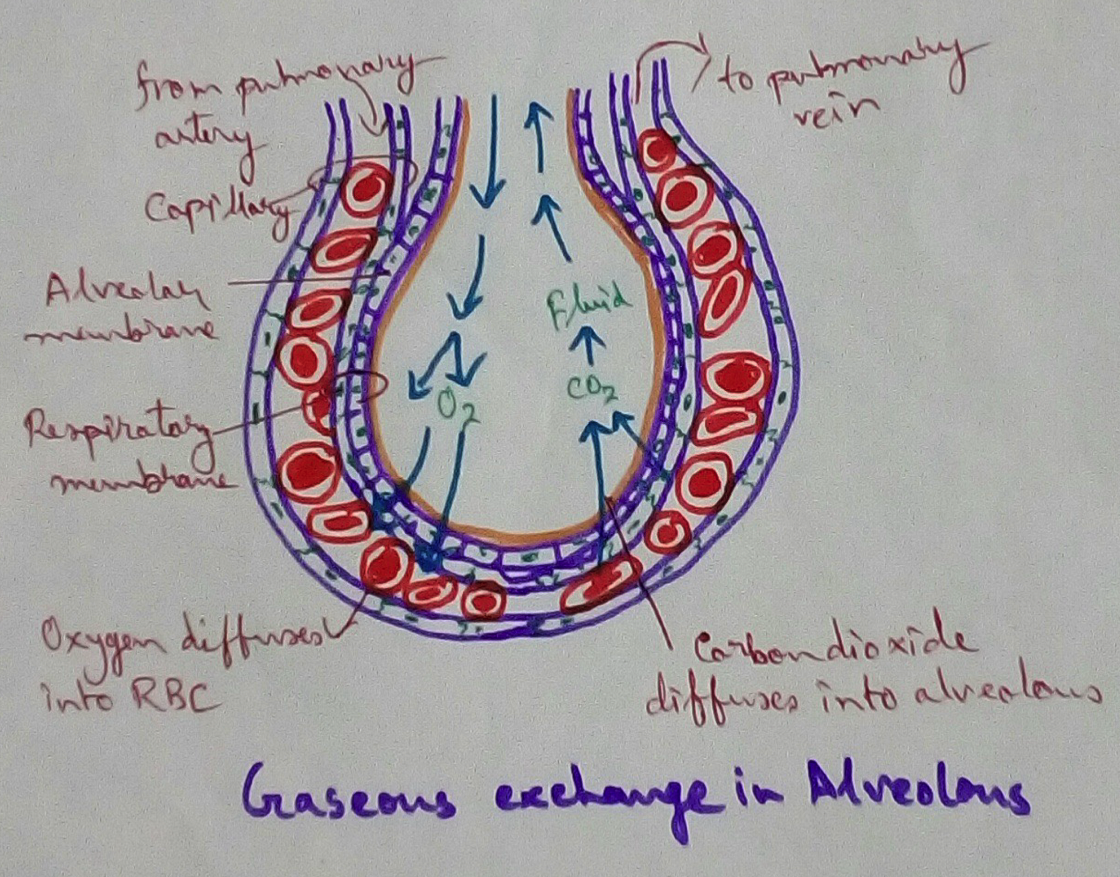 from pulmonary
artery
to pulmonary
vein
Capillary
Alveolar
membrane
Fluid
CO2
O2
Respiratory
membrane
Oxygen diffuses
into RBC
Carbondioxide
diffuses into alveolous
Gaseous exchange in Alveolous